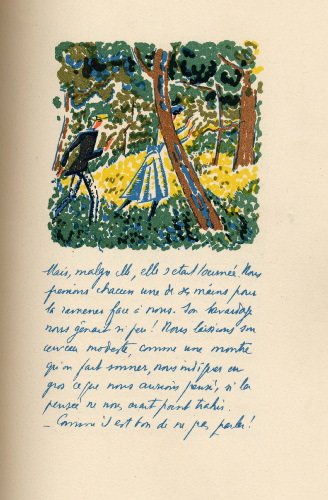 Mais, malgré elle, elle s'était tournée. Nous
prenions chacun une de ses mains pour
la ramener face à nous. Son bavardage
nous gênait si peu! Nous laissions son
cerveau modeste, comme une montre
qu'on fait sonner, nous indiquer en
gros ce que nous aurions pensé, si la
pensée ne nous avait point trahis.
_ Comme il est bon de ne pas parler!